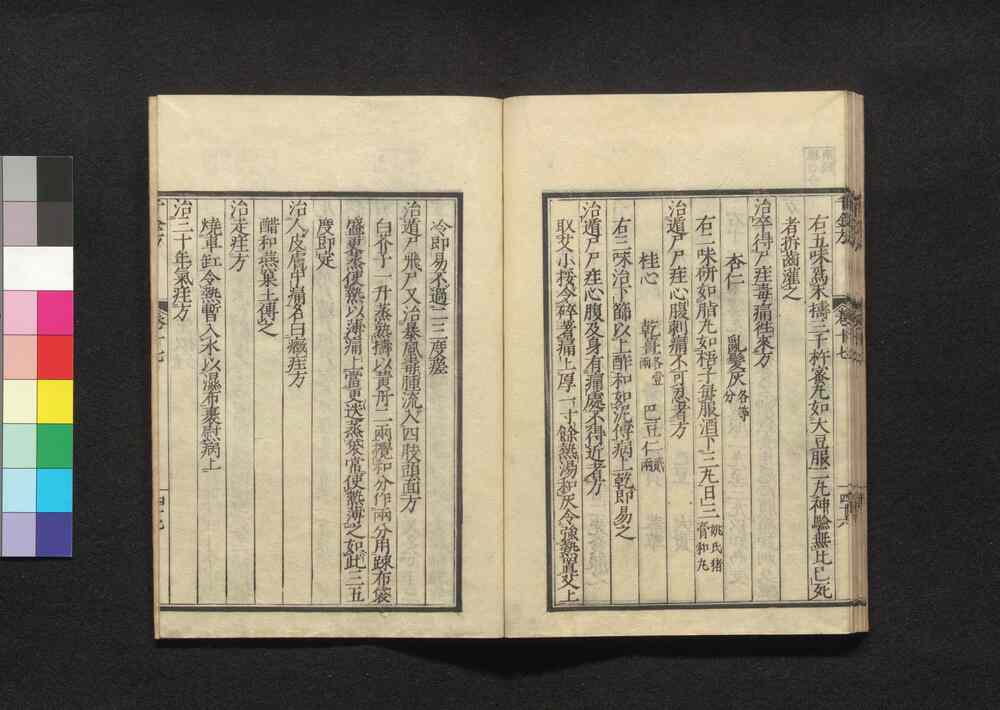 右五味爲末擣三千杵蜜丸如大豆服二丸神驗無比已死
者拆齒灌之
治卒得尸疰毒痛往來方
杏仁 亂髮灰各等分
右二味研如脂丸如梧子每服酒下三丸日三姚氏猪膏和丸
治遁尸尸疰心腹刺痛不可忍者方
桂心 乾薑各壹兩 巴豆仁貳兩
右三味治下篩以上酢和如泥傅病上乾即易之
治遁尸尸疰心腹及身有痛處不得近者方
取艾小挼令碎著痛上厚一寸餘熱湯和灰令強熱置艾上
千金方 卷十七 四十六
冷即易不過二三度瘥
治遁尸飛尸又治暴風毒腫流入四肢頭面方
白芥子一升蒸熟擣以黃丹二兩攪和分作兩分用疎布袋
盛更蒸使熱以薄痛上當更迭蒸袋常使熱薄之如此三五
度即定
治人皮膚中痛名曰癥疰方
醋和鷰窠土傅之
治走疰方
燒車缸令熱暫入水以濕布裹熨病上
治三十年氣疰方
千金方 卷十七 四十七